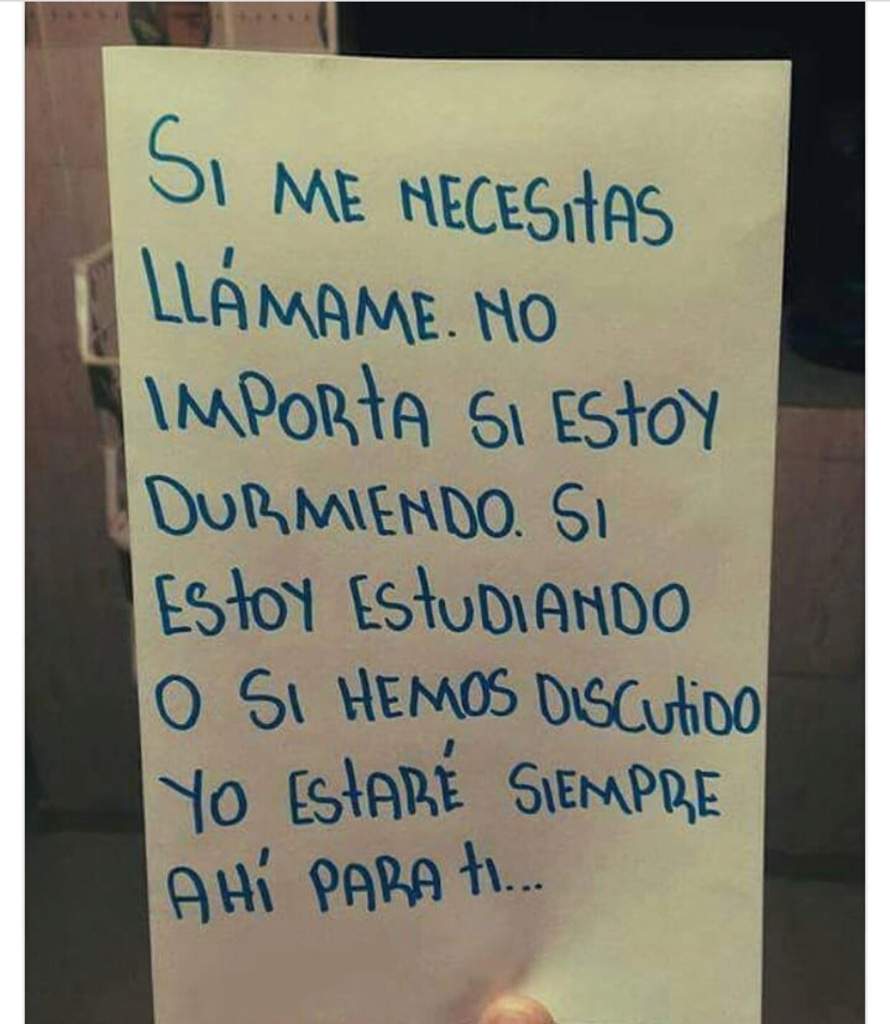 SI ME NECESITAS
LLÁMAME. NO
IMPORTA SI ESTOY
DURMIENDO. SI
ESTOY ESTUDIANDO
O SI HEMOS DISCUTIDO
YO ESTARÉ SIEMPRE
AHÍ PARA TI...